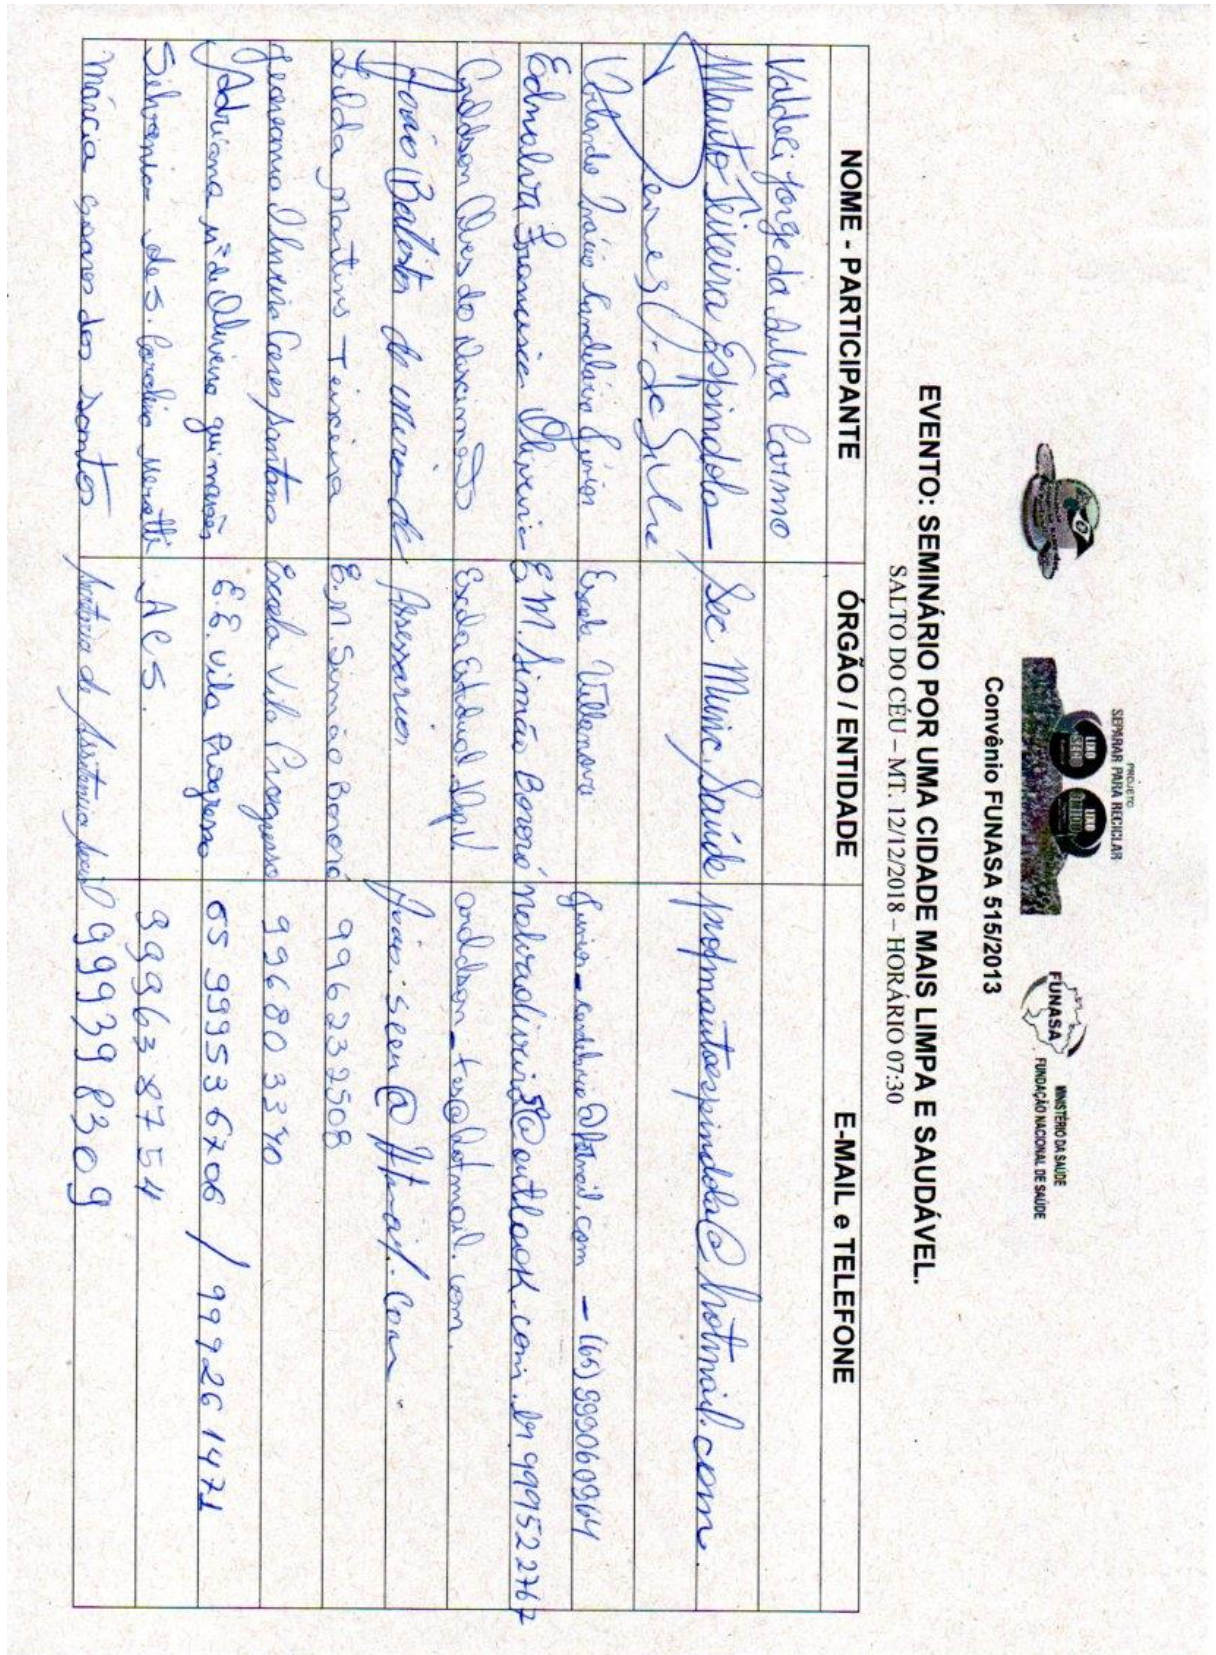 PROJETO
SEPARAR PARA RECICLAR
LIXO SECO
LIXO ÚMIDO
FUNASA
MINISTÉRIO DA SAÚDE
FUNDAÇÃO NACIONAL DE SAÚDE
Convênio FUNASA 515/2013
EVENTO: SEMINÁRIO POR UMA CIDADE MAIS LIMPA E SAUDÁVEL.
SALTO DO CÉU – MT. 12/12/2018 – HORÁRIO 07:30
NOME - PARTICIPANTE ÓRGÃO / ENTIDADE E-MAIL e TELEFONE
Valdeci Jorge da Silva Carmo
Mauto Teixeira Espindola Sec. Munic. Saúde profmautoespindola@hotmail.com
da Silva
Orlando Candelário Júnior Escola Villanova junior_candelario@hotmail.com – (65) 999060964
Ednalva Francisca Oliveira E.M. Simão Bororó nalvaoliveira5@outlook.com.br 999522767
Alves do Nascimento Escola Estadual
João Batista de Miranda Assessor
Zilda Martins Teixeira E.M. Simão Bororó 996232508
Oliveira Santana Escola Vila Progresso 996803340
Adriana Mª de Oliveira guimarães E.E. Vila Progresso 65 999536706 / 999261471
dos S. ACS. 999638754
Márcia soares dos santos de Assistencia Social 999398309